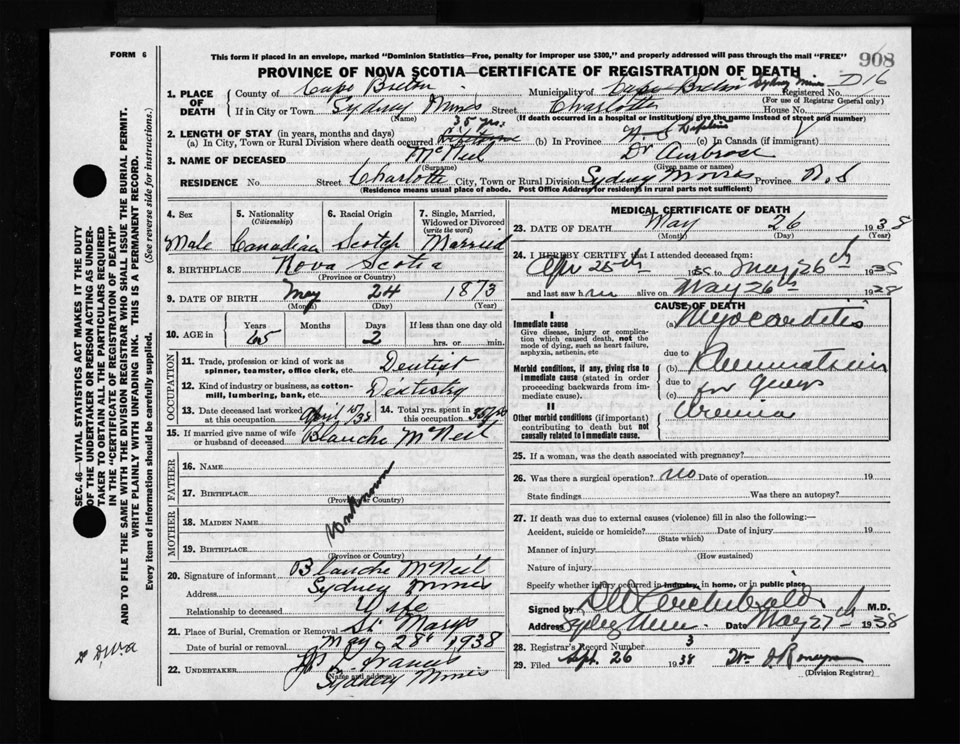 908
FORM 6
This form if placed in an envelope, marked "Dominion Statistics—Free, penalty for improper use $300," and properly addressed will pass through the mail "FREE"
PROVINCE OF NOVA SCOTIA—CERTIFICATE OF REGISTRATION OF DEATH
1. PLACE OF DEATH
County of Cape Breton Municipality of Cape Breton Sydney Mines Registered No. D16
(For use of Registrar General only)
If in City or Town Sydney Mines Street Charlotte House No.
(Name) (If death occurred in a hospital or institution, give the name instead of street and number)
2. LENGTH OF STAY (in years, months and days)
35 yrs.
(a) In City, Town or Rural Division where death occurred Lifetime (b) In Province (c) In Canada (if immigrant)
3. NAME OF DECEASED McNeil Dr Ambrose
(Surname) (Given name or names)
RESIDENCE No. Street Charlotte City, Town or Rural Division Sydney Mines Province N.S
(Residence means usual place of abode. Post Office Address for residents in rural parts not sufficient)
SEC. 46—VITAL STATISTICS ACT MAKES IT THE DUTY
OF THE UNDERTAKER OR PERSON ACTING AS UNDER-
TAKER TO OBTAIN ALL THE PARTICULARS REQUIRED
IN THE "CERTIFICATE OF REGISTRATION OF DEATH"
AND TO FILE THE SAME WITH THE DIVISION REGISTRAR WHO SHALL ISSUE THE BURIAL PERMIT.
WRITE PLAINLY WITH UNFADING INK. THIS IS A PERMANENT RECORD.
Every item of information should be carefully supplied. (See reverse side for instructions.)
4. Sex 5. Nationality 6. Racial Origin 7. Single, Married,
(Citizenship) Widowed or Divorced
(write the word)
Male Canadian Scotch Married
8. BIRTHPLACE Nova Scotia
(Province or Country)
9. DATE OF BIRTH May 24 1873
(Month) (Day) (Year)
10. AGE in Years Months Days If less than one day old
65 2 hrs. or min.
OCCUPATION
11. Trade, profession or kind of work as
spinner, teamster, office clerk, etc. Dentist
12. Kind of industry or business, as cotton-
mill, lumbering, bank, etc. Dentistry
13. Date deceased last worked
at this occupation April 15/38
14. Total yrs. spent in
this occupation
15. If married give name of wife
or husband of deceased Blanche McNeil
FATHER
16. NAME
17. BIRTHPLACE
(Province or Country)
Unknown
MOTHER
18. MAIDEN NAME
19. BIRTHPLACE
(Province or Country)
20. Signature of informant Blanche McNeil
Address Sydney Mines
Relationship to deceased Wife
21. Place of Burial, Cremation or Removal St Marys
Date of burial or removal May 28 1938
22. UNDERTAKER Francis
(Name and address)
Sydney Mines
MEDICAL CERTIFICATE OF DEATH
23. DATE OF DEATH May 26 1938
(Month) (Day) (Year)
24. I HEREBY CERTIFY that I attended deceased from:
Apr 25th 1938 to May 26th 1938
and last saw him alive on May 26th 1938
CAUSE OF DEATH
I
Immediate cause
Give disease, injury or complica-
tion which caused death, not the
mode of dying, such as heart failure,
asphyxia, asthenia, etc
(a) Myocarditis
due to
Morbid conditions, if any, giving rise to
immediate cause (stated in order
proceeding backwards from im-
mediate cause).
(b) Rheumatism
due to
(c) for years
II
Other morbid conditions (if important)
contributing to death but not
causally related to immediate cause.
Uremia
25. If a woman, was the death associated with pregnancy?
26. Was there a surgical operation? No Date of operation 19
State findings Was there an autopsy?
27. If death was due to external causes (violence) fill in also the following:—
Accident, suicide or homicide? Date of injury 19
(State which)
Manner of injury
(How sustained)
Nature of injury
Specify whether injury occurred in industry, in home, or in public place
Signed by D W Archibald M.D.
Address Sydney Mines Date May 27th 1938
28. Registrar's Record Number 3
29. Filed Sept. 26 1938
(Division Registrar)